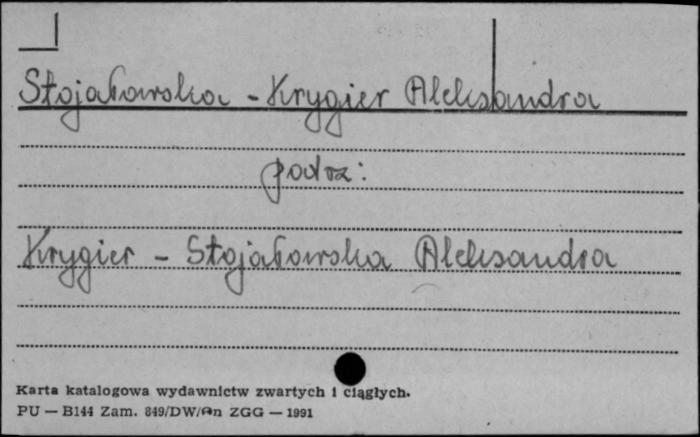 Stojałowska - Krygier Aleksandra
podrz:
Krygier - Stojałowska Aleksandra
Karta katalogowa wydawnictw zwartych i ciągłych.
PU — B144 Zam. 849/DW/An ZGG — 1991